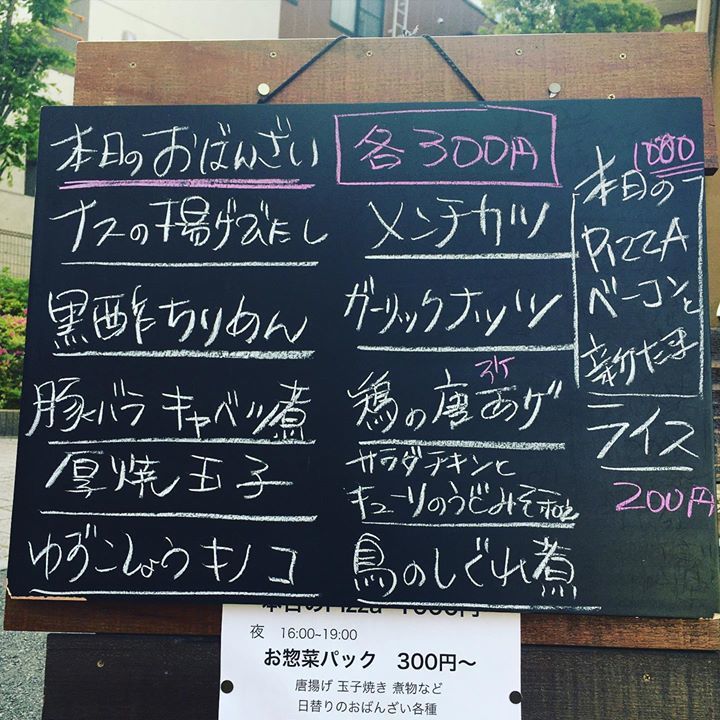 本日のおばんざい 各300円
ナスの揚げびたし
黒酢ちりめん
豚バラキャベツ煮
厚焼玉子
ゆずこしょうキノコ
メンチカツ
ガーリックナッツ
鶏の唐あげ
サラダチキンと
キューリのうどみそ和え
鳥のしぐれ煮
1000
本日の
PIZZA
ベーコンと
新たま
ライス
200円
本日のPizza 1000円
夜 16:00~19:00
お惣菜パック 300円〜
唐揚げ 玉子焼き 煮物など
日替りのおばんざい各種